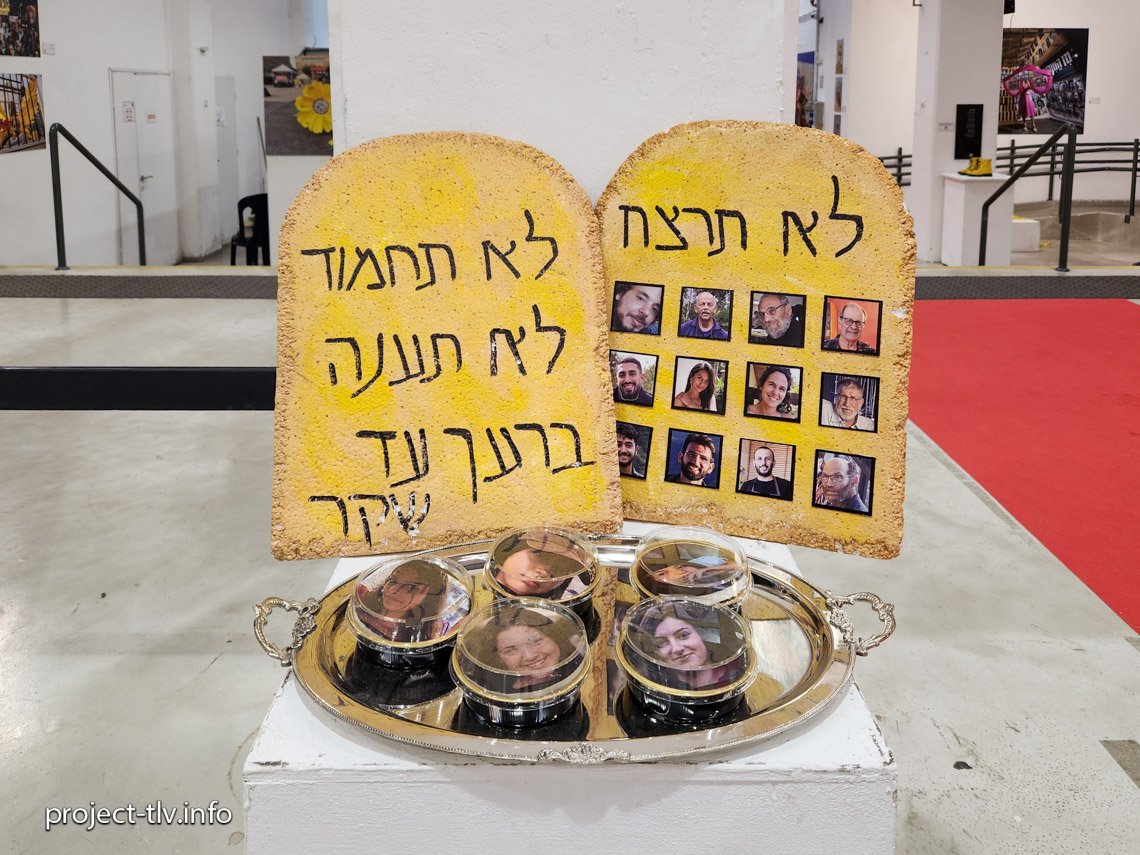 לא תרצח
לא תחמוד
לא תענה
ברעך עד
שקר
project-tlv.info